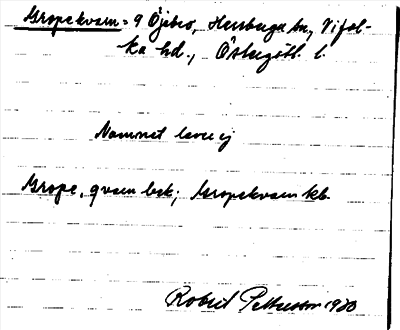 Gropekvarn = 9 Öjebro, Herrberga sn, Vifol-
ka hd., Östergötl. l.
Namnet lever ej
Grope, qvarn besk.; Gropekvarn kb.
Robert Pettersson 1930